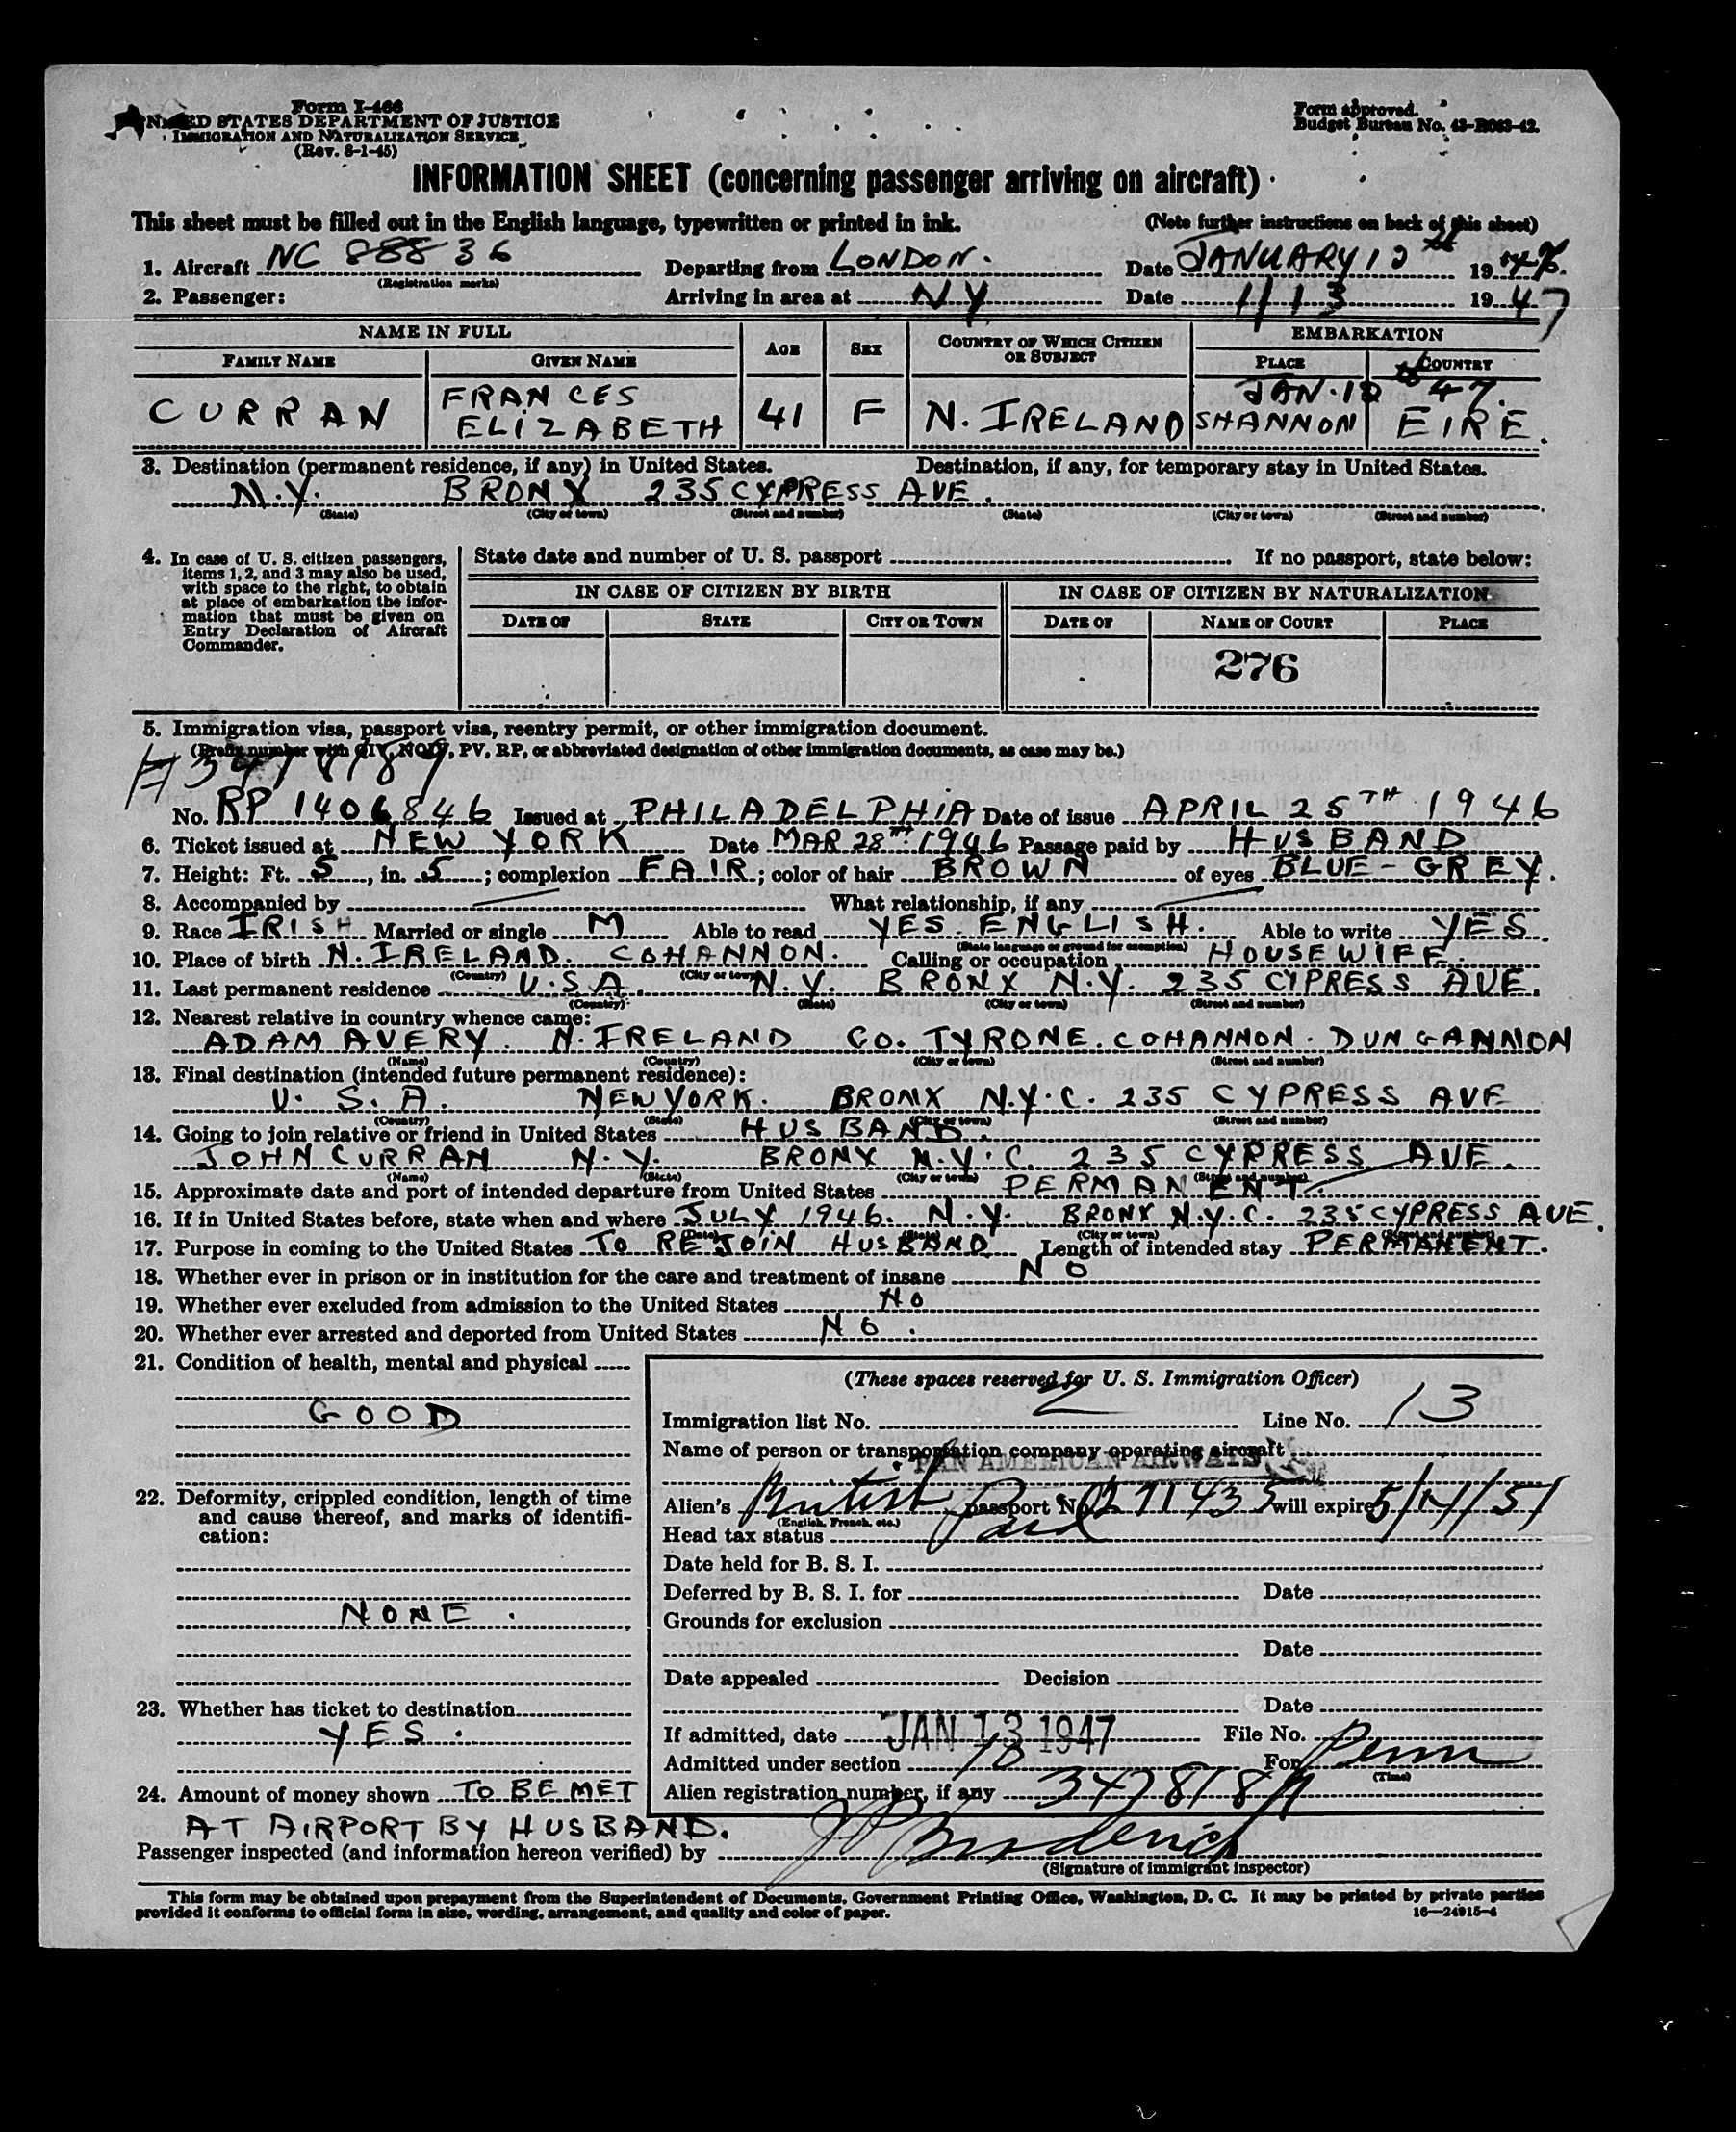 Form I-466
UNITED STATES DEPARTMENT OF JUSTICE
IMMIGRATION AND NATURALIZATION SERVICE
(Rev. 8-1-45)
Form approved.
Budget Bureau No. 43-R063-42.
INFORMATION SHEET (concerning passenger arriving on aircraft)
This sheet must be filled out in the English language, typewritten or printed in ink. (Note further instructions on back of this sheet)
1. Aircraft NC 88836 Departing from LONDON. Date JANUARY 12th 1947.
(Registration marks)
2. Passenger: Arriving in area at NY Date 1/13 1947
NAME IN FULL AGE SEX COUNTRY OF WHICH CITIZEN OR SUBJECT EMBARKATION
FAMILY NAME GIVEN NAME PLACE COUNTRY
JAN. 12 47.
CURRAN FRANCES ELIZABETH 41 F N. IRELAND SHANNON EIRE.
3. Destination (permanent residence, if any) in United States. Destination, if any, for temporary stay in United States.
N.Y. BRONX 235 CYPRESS AVE.
(State) (City or town) (Street and number) (State) (City or town) (Street and number)
4. In case of U. S. citizen passengers, items 1, 2, and 3 may also be used, with space to the right, to obtain at place of embarkation the information that must be given on Entry Declaration of Aircraft Commander.
State date and number of U. S. passport If no passport, state below:
IN CASE OF CITIZEN BY BIRTH IN CASE OF CITIZEN BY NATURALIZATION
DATE OF STATE CITY OR TOWN DATE OF NAME OF COURT PLACE
276
5. Immigration visa, passport visa, reentry permit, or other immigration document.
(Prefix number with QIV, NQIV, PV, RP, or abbreviated designation of other immigration documents, as case may be.)
No. RP 1406846 Issued at PHILADELPHIA Date of issue APRIL 25TH 1946
6. Ticket issued at NEW YORK Date MAR 28TH 1946 Passage paid by HUSBAND
7. Height: Ft. 5, in. 5; complexion FAIR; color of hair BROWN of eyes BLUE-GREY.
8. Accompanied by — What relationship, if any —
9. Race IRISH Married or single M Able to read YES ENGLISH. Able to write YES.
(State language or ground for exemption)
10. Place of birth N. IRELAND. COHANNON. Calling or occupation HOUSEWIFE.
(Country) (City or town)
11. Last permanent residence U.S.A. N.Y. BRONX N.Y. 235 CYPRESS AVE.
(Country) (State) (City or town) (Street and number)
12. Nearest relative in country whence came:
ADAM AVERY. N. IRELAND CO. TYRONE. COHANNON. DUNGANNON
(Name) (Country) (City or town) (Street and number)
13. Final destination (intended future permanent residence):
U. S. A. NEW YORK. BRONX N.Y.C. 235 CYPRESS AVE
(Country) (State) (City or town) (Street and number)
14. Going to join relative or friend in United States HUSBAND.
JOHN CURRAN N.Y. BRONX N.Y.C. 235 CYPRESS AVE.
(Name) (State) (City or town) (Street and number)
15. Approximate date and port of intended departure from United States PERMANENT.
16. If in United States before, state when and where JULY 1946. N.Y. BRONX N.Y.C. 235 CYPRESS AVE.
(Date) (State) (City or town) (Street and number)
17. Purpose in coming to the United States TO REJOIN HUSBAND Length of intended stay PERMANENT.
18. Whether ever in prison or in institution for the care and treatment of insane NO
19. Whether ever excluded from admission to the United States NO
20. Whether ever arrested and deported from United States NO.
21. Condition of health, mental and physical
GOOD
22. Deformity, crippled condition, length of time and cause thereof, and marks of identification:
NONE.
23. Whether has ticket to destination
YES.
24. Amount of money shown TO BE MET
AT AIRPORT BY HUSBAND.
(These spaces reserved for U. S. Immigration Officer)
Immigration list No. 2 Line No. 13
Name of person or transportation company operating aircraft
PAN AMERICAN AIRWAYS
Alien's British passport No. 271435 will expire
(English, French, etc.)
Head tax status Paid
Date held for B. S. I.
Deferred by B. S. I. for Date
Grounds for exclusion
Date
Date appealed Decision
Date
If admitted, date JAN 13 1947 File No.
Admitted under section For Perm
(Time)
Alien registration number, if any 3478189
Passenger inspected (and information hereon verified) by
(Signature of immigrant inspector)
This form may be obtained upon prepayment from the Superintendent of Documents, Government Printing Office, Washington, D. C. It may be printed by private parties
provided it conforms to official form in size, wording, arrangement, and quality and color of paper. 16—24915-4